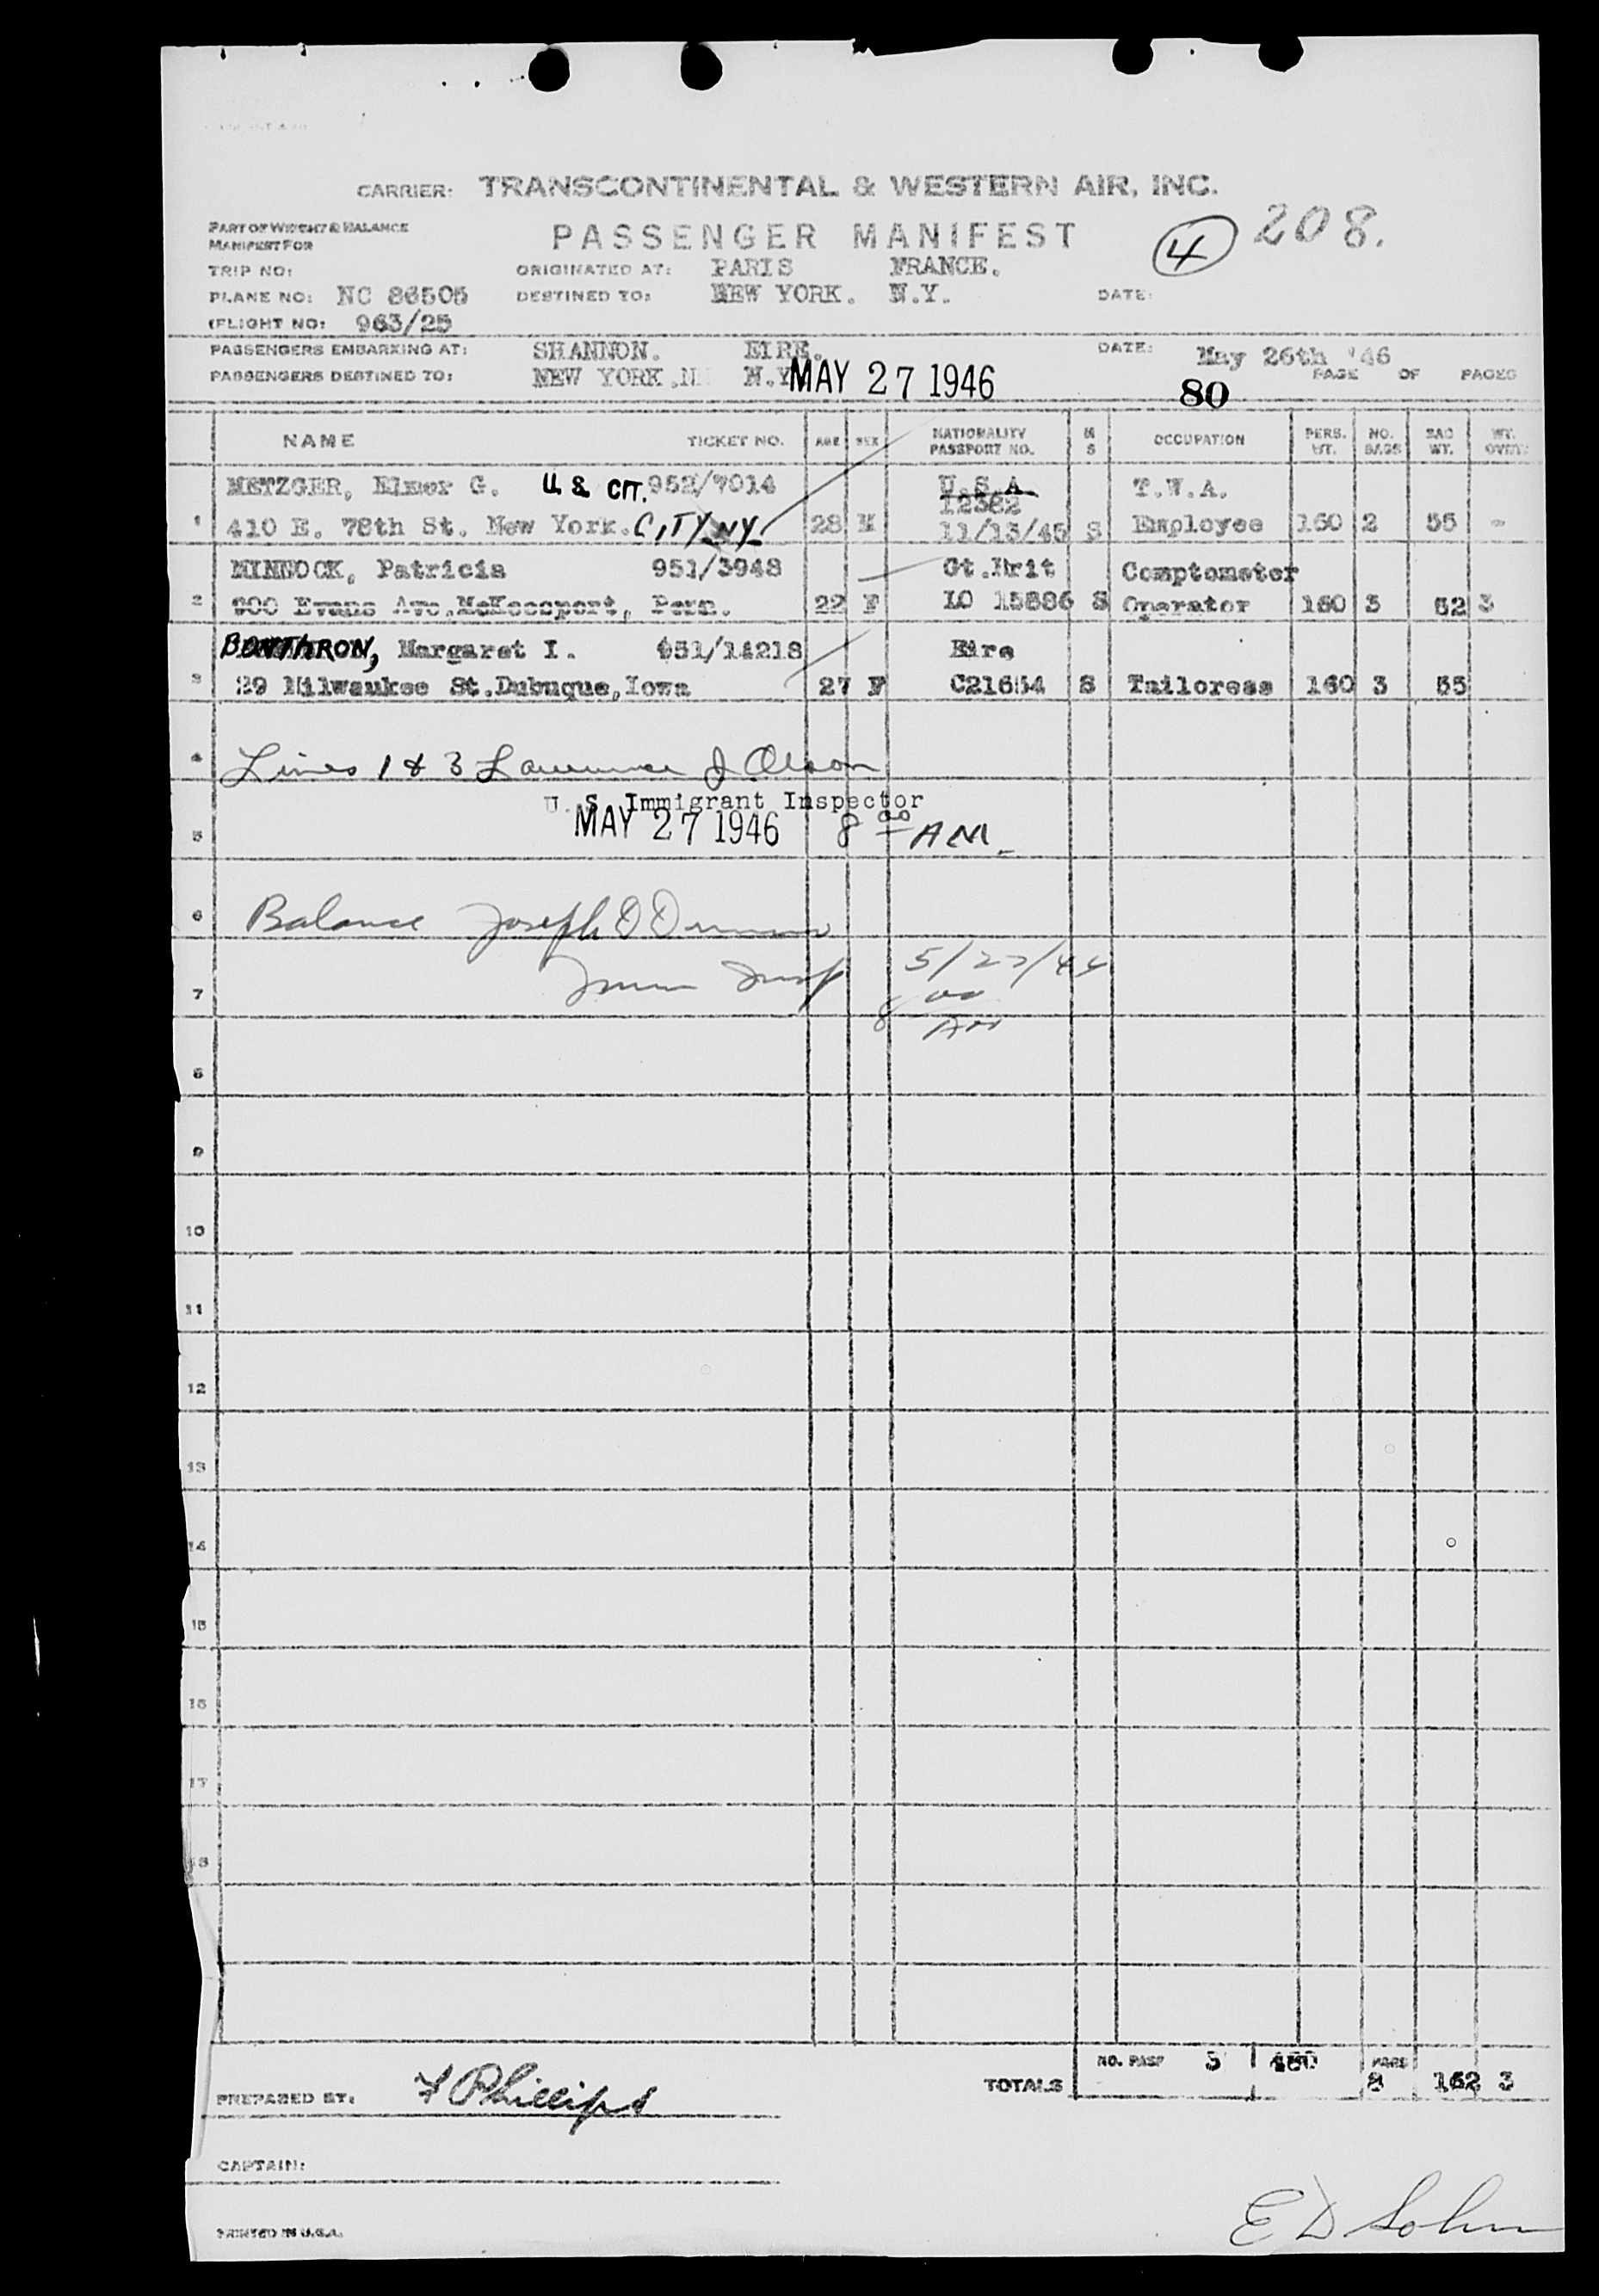 CARRIER: TRANSCONTINENTAL & WESTERN AIR, INC.
PART OF WEIGHT & BALANCE
MANIFEST FOR
PASSENGER MANIFEST
4 208.
TRIP NO: ORIGINATED AT: PARIS FRANCE.
PLANE NO: NC 86505 DESTINED TO: NEW YORK. N.Y. DATE:
(FLIGHT NO: 963/25
PASSENGERS EMBARKING AT: SHANNON. EIRE. DATE: May 26th '46
PASSENGERS DESTINED TO: NEW YORK. N.Y. MAY 27 1946 PAGE OF PAGES
80
NAME TICKET NO. AGE SEX NATIONALITY PASSPORT NO. M S OCCUPATION PERS. WT. NO. BAGS BAG WT. WT. OVER
METZGER, Elmer G. U.S. CIT. 952/7014 U.S.A. T.W.A.
12382
1 410 E. 78th St. New York. CITY NY 28 M 11/13/45 S Employee 160 2 55 -
MINNOCK, Patricia 951/3948 Gt.Brit Comptometer
2 900 Evans Ave. McKeesport, Penn. 22 F LO 15886 S Operator 160 3 52 3
BONTHRON, Margaret I. 951/14218 Eire
3 29 Milwaukee St. Dubuque, Iowa 27 F C21654 S Tailoress 160 3 55
4 Lines 1 & 3 Lawrence J Olson
U. S. Immigrant Inspector
5 MAY 27 1946 8 00 AM.
6 Balance Joseph D
7 Imm Insp 5/27/46
8 00
AM
8
9
10
11
12
13
14
15
16
17
18
NO. PASS 3 480
TOTALS 8 162 3
PREPARED BY: F Phillips
CAPTAIN:
PRINTED IN U.S.A.
E D Sohn